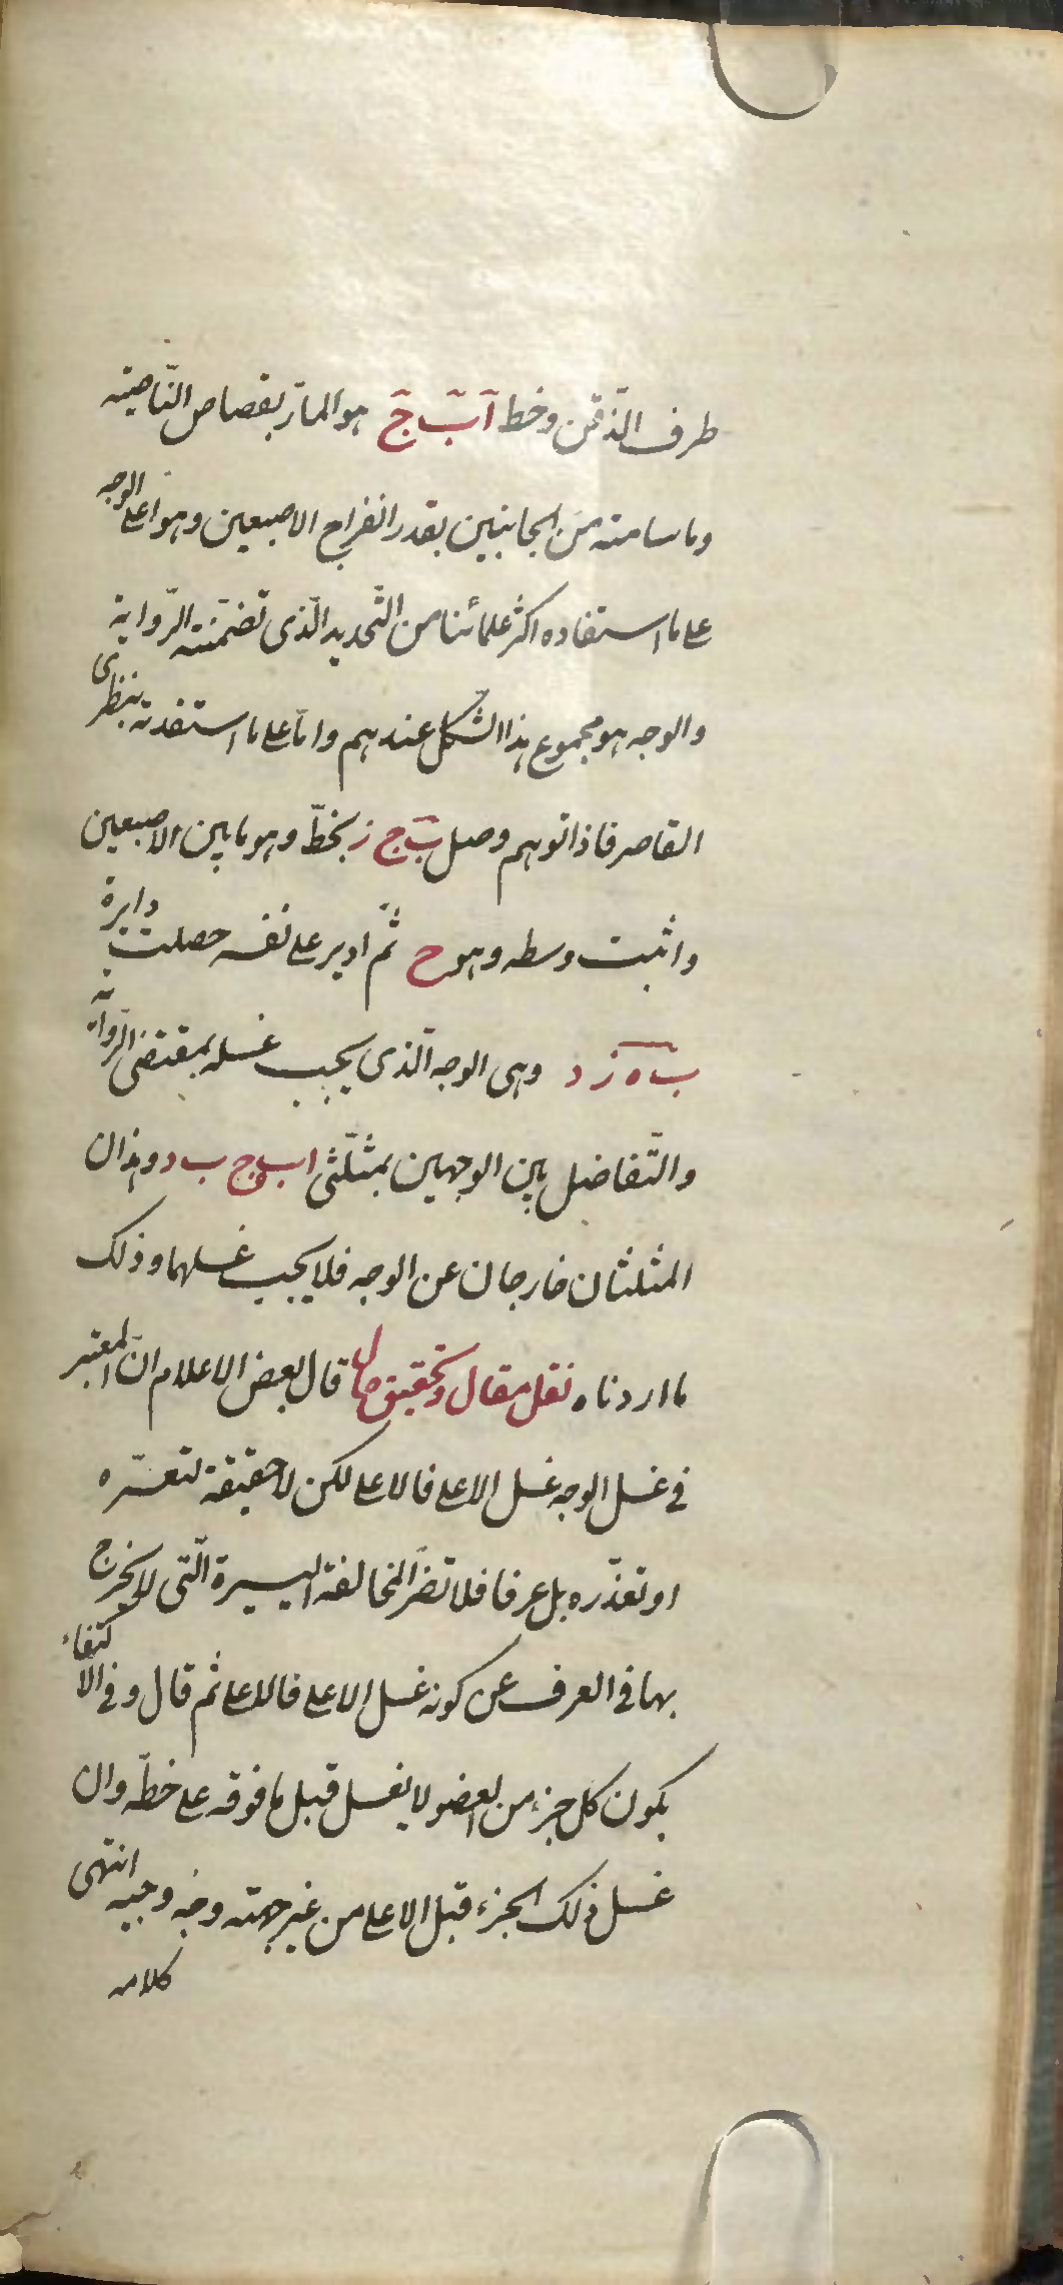 طرف الذّقن وخط آ بَ جَ هو المارّ بقصاص النّاصیته
وما سامته من الجانبین بقدر انفراج الاصبعین وهو اعلی الوجه
علی ما استفاده اکثر علمائنا من التّحدید الّذی تضمّنته الرّوایة
والوجه هو مجموع هذا الشّکل عندهم وامّا علی ما استفدته بنظری
القاصر فاذا توهم وصل ب ج ز بخطّ وهو ما بین الاصبعین
واثبت وسطه وهو ح ثمّ ادیر علی نفسه حصلت دایرة
ب ه ز د وهی الوجه الّذی یجب غسله بمقتضی الرّوایة
والتّفاضل بین الوجهین بمثلّثی ا ب و ج ب د وهذان
المثلثان خارجان عن الوجه فلا یجب غسلهما وذلک
ما اردناه نقل مقال وتحقیق حال قال بعض الاعلام انّ المعتبر
فی غسل الوجه غسل الاعلی فالاعلی لکن لا حقیقة لتعسّره
او تعذّره بل عرفا فلا تضرّ المخالفة الیسیرة الّتی لا یخرج
بها فی العرف عن کونه غسل الاعلی فالاعلی ثم قال و فی الاکتفاء
بکون کل جزء من العضو لا یغسل قبل ما فوقه علی خطّه وان
غسل ذلک الجزء قبل الاعلی من غیر جهته وجه وجیه انتهی
کلامه